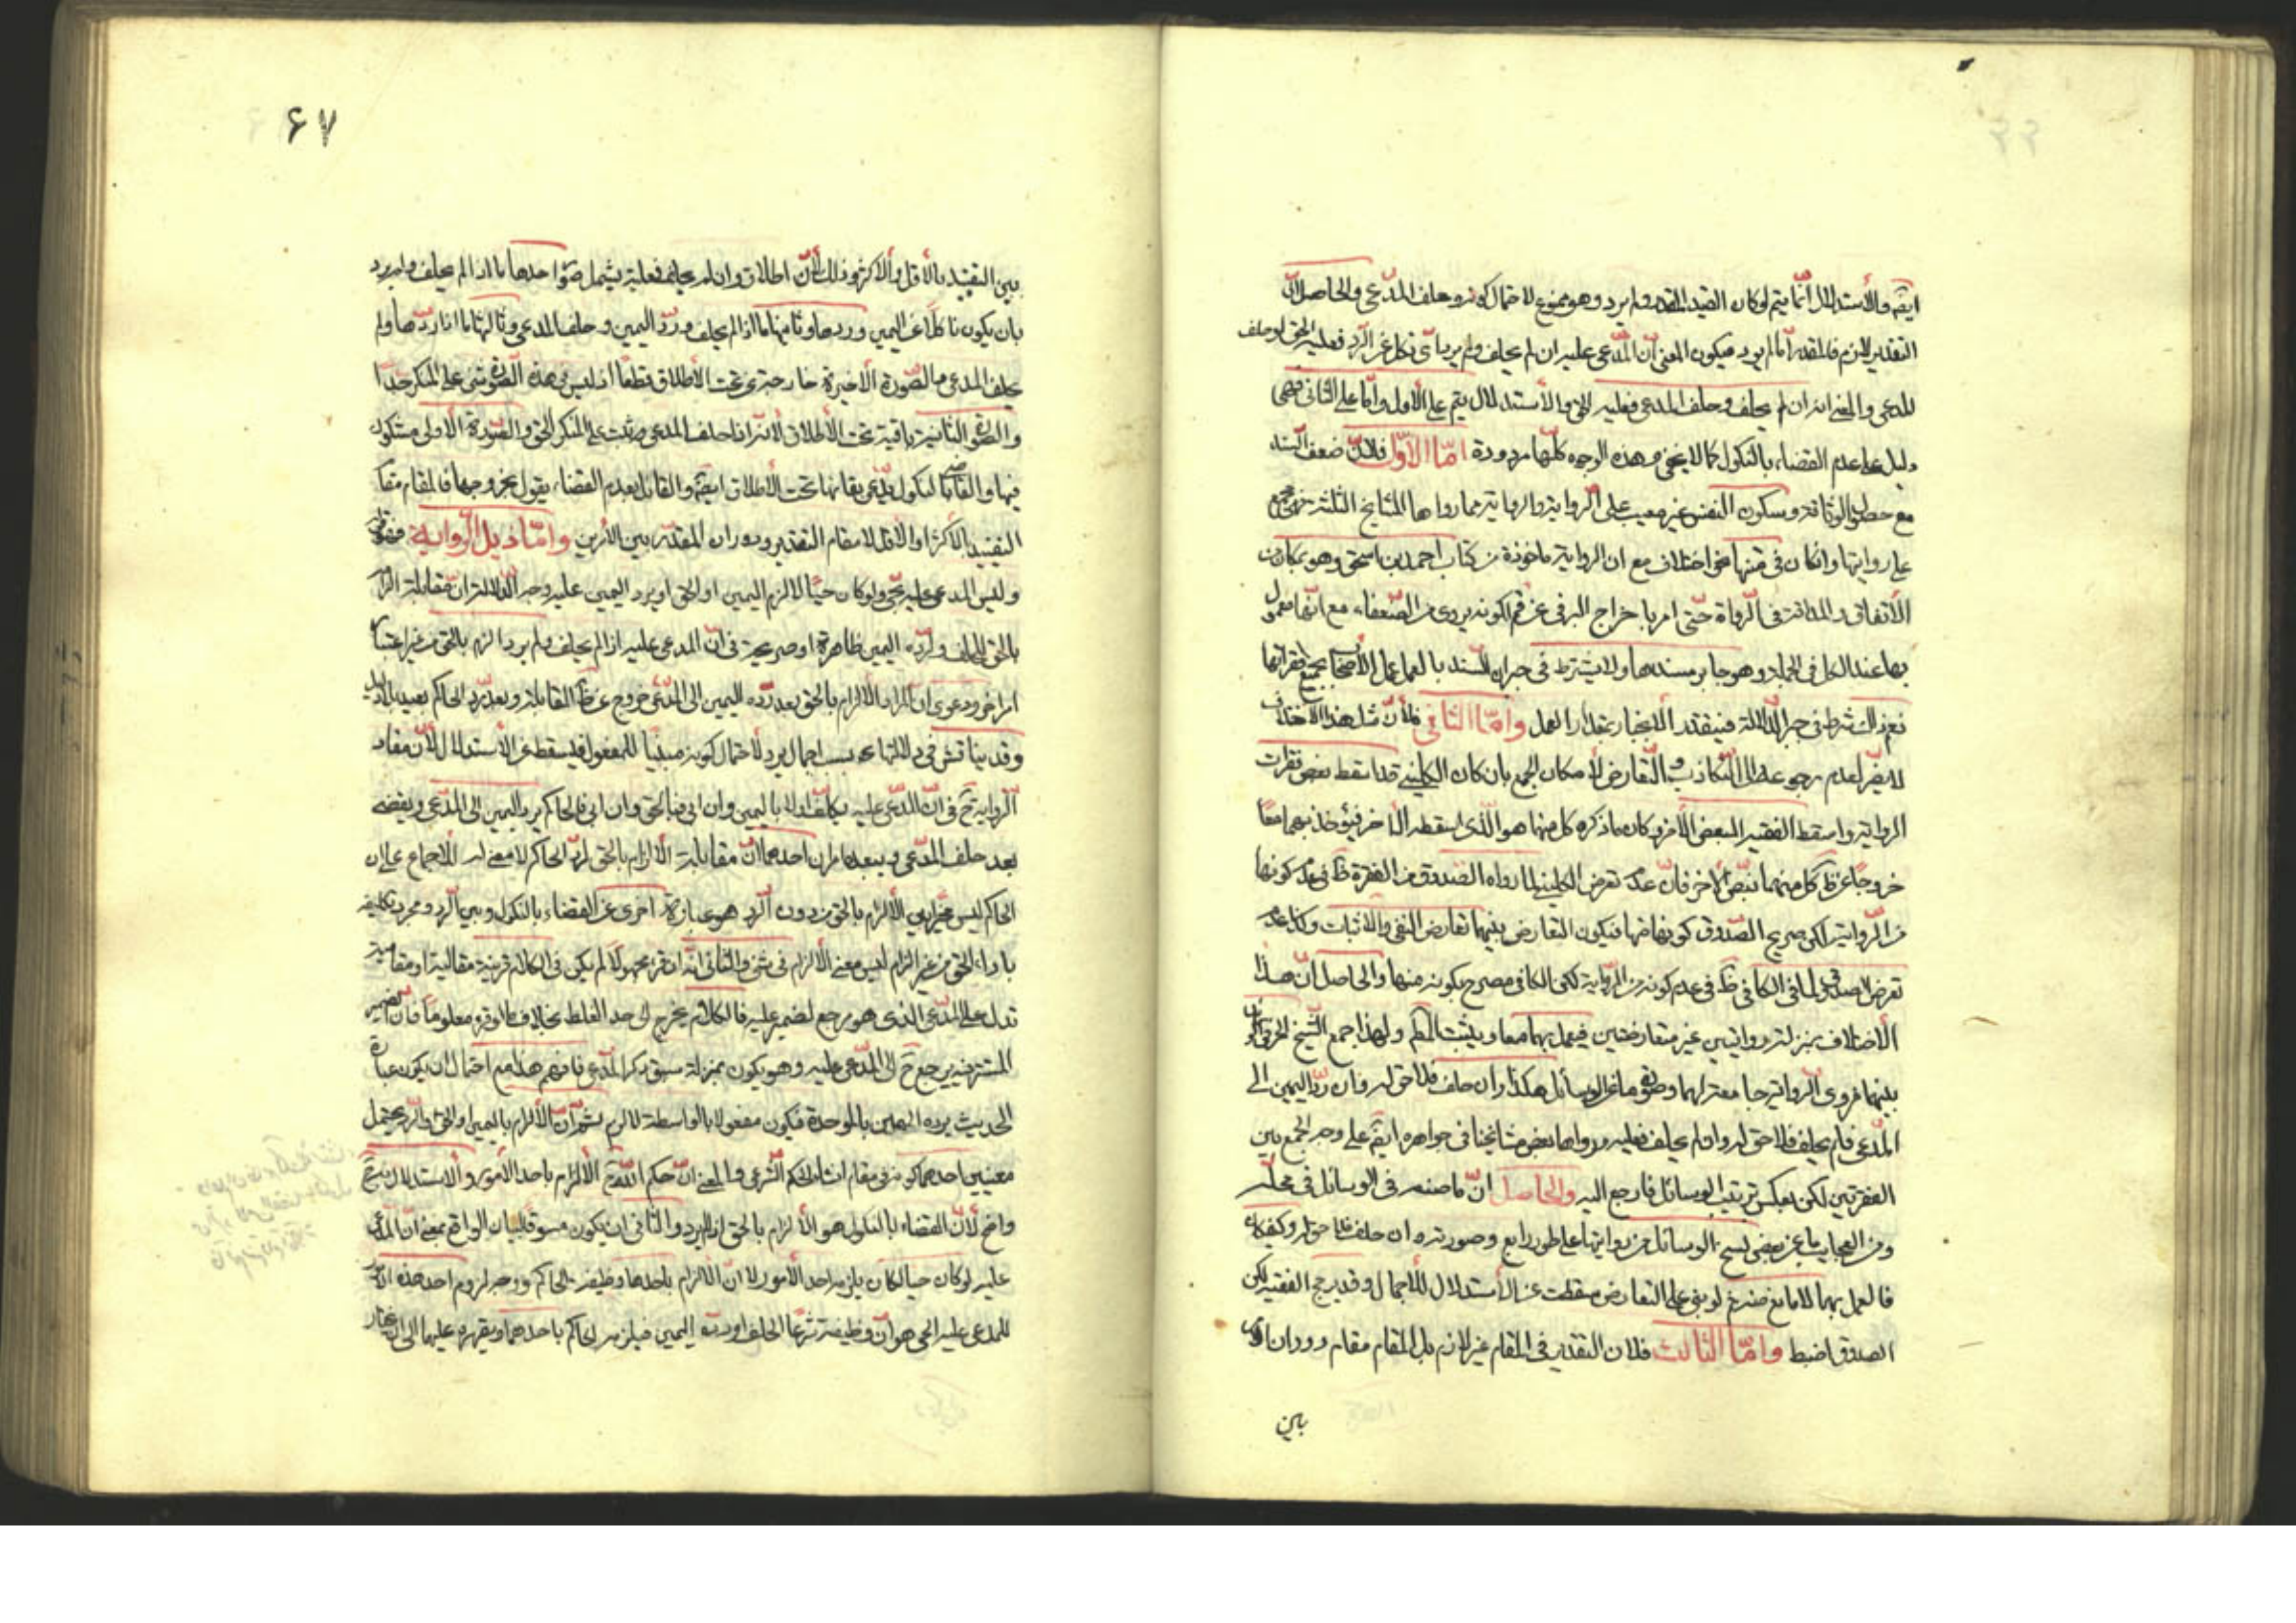 ايضًا والأستدلال انّما يتم لوكان القيد المقدر ولم يرد وهو ممنوع لاحتمال كونه وحلف المدّعى والحاصل انّ
التقدير لازم فالمقدر امّا لم يرد فيكون المعنى انّ المدّعى عليه ان لم يحلف ولم يرد بأى نكل عن الرّد فعليه الحق او حلف
المدعى والمعنى انه ان لم يحلف وحلف المدعى فعليه الحق والأستدلال يتم على الأول وامّا على الثانى فهى
دليل على عدم القضاء بالنكول كما لا يخفى وهذه الوجوه كلّها مردودة امّا الاوّل فلانّ ضعف السّند
مع حصول الوثاقة وسكون النفس غير معيب على الرواية والرواية مما رواها المشايخ الثلثة
على روايتها وانكان فى متنها نحو اختلاف مع ان الرواية ماخوذة من كتاب احمد بن اسحق وهو بمكان من
الأتقان والمداقة فى الرّواة حتّى امر باخراج البرقى عن قم لكونه يروى من الضّعفاء مع انّها معمول
بها عند الكل فى الجملة وهو جابر مسندها ولا يشترط فى جبران السّند بالعمل عمل الأصحاب بجميع فقراتها
نعم ذلك شرط فى جبر الدّلالة فيتقدر الأنجبار بمقدار العمل وامّا الثانى فلأنّ مثل هذا الاختلاف
لا يضرّ لعدم رجوعه الى التّكاذب والتّعارض لأمكان الجمع بان كان الكلينى قد اسقط بعض فقرات
الرواية واسقط الفقيه البعض الأخر وكان ماذكره كل منهما هو الّذى اسقطه الأخر فيؤخذ بهما معًا
خروجًا عن ظ كل منهما بنصّ الأخر فانّ عدم تعرض الكلينى لما رواه الصدوق من الفقرة ظ فى عدم كونها
من الرّواية لكن صريح الصّدوق كونها منها فيكون التعارض بينهما تعارض النفى والأثبات وكذا عدم
تعرض الصدوق لما فى الكافى ظ فى عدم كونه من الرّواية لكن الكافى مصرح بكونه منها والحاصل انّ هذا
الأختلاف بمنزلة روايتين غير متعارضتين فيعمل بهما معا ويثبت الحكم ولهذا جمع الشّيخ الحر
بينهما فروى الرّواية جامعة لهما وصورة ما فى الوسائل هكذا وان حلف فلا حق له وان ردّ اليمين الى
المدّعى فلم يحلف فلا حق له وان لم يحلف فعليه ورواها بعض مشايخنا فى جواهره ايضًا على وجه الجمع بين
الفقرتين لكن بعكس ترتيب الوسائل فارجع اليه والحاصل انّ ما صنعه فى الوسائل فى محلّه
ومن العجايب ما عن بعض نسخ الوسائل من روايتها على طور رابع وصورته ان حلف فلا حق له وكيفكان
فالعمل بهما لا مانع منه نعم لو بنى على التعارض سقطت عن الأستدلال للأجمال وقد يرجح الفقيه لكن
الصدوق اضبط وامّا الثالث فلان التقدير فى المقام غير لازم بل المقام مقام دوران
بين
٦٧
بين التقييد بالأقل والأكثر وذلك لأنّ اطلاق وان لم يحلف فعليه يشمل صورًا احدها ما اذا لم يحلف ولم يرد
بان يكون ناكلًا عن اليمين وردها وثانيها ما اذا لم يحلف وردّ اليمين وحلف المدعى وثالثها ما اذا ردّها ولم
يحلف المدعى فالصّورة الأخيرة خارجة عن تحت الأطلاق قطعًا اذ ليس فى هذه الصّورة شئ على المنكر جدّا
والصّورة الثانية باقية تحت الأطلاق لأنّه اذا حلف المدعى يثبت على المنكر الحق والصّورة الأولى مشكوك
فيها والقائل بالنكول يدّعى بقائها تحت الأطلاق ايضًا والقائل بعدم القضاء يقول بخروجها فالمقام مقام
التقييد بالأكثر او الأقل لا مقام التقدير ودوران المقدّر بين الأمرين وامّا ذيل الرّواية
وليس المدعى عليه بحىّ ولو كان حيًّا لالزم اليمين او الحق او يرد اليمين عليه وجه الدّلالة انّ مقابلة الزامه
بالحق للحلف ولردّه اليمين ظاهرة او صريحة فى انّ المدعى عليه اذا لم يحلف ولم يرد الزم بالحق من غير اعتبار
امر اخر ودعوى ان المراد الالزام بالحق بعد ردّه اليمين الى المدّعى خروج عن ظ المقابلة وبعد رد الحاكم بعيد
وقد يناقش فى دلالتها بسبب اجمال يرد لأحتمال كونه مبنيًا للمفعول فيسقط عن الأستدلال لأنّ مفاد
الرّواية ح فى انّ المدّعى عليه يكلّف اولا باليمين وان ابى فبالحق وان ابى فالحاكم يرد اليمين الى المدّعى ويقضى
بعد حلف المدّعى ويبعده امران احدهما انّ مقابلة الألزام بالحق لردّ الحاكم لا معنى له للأجماع على ان
الحاكم ليس مخيّرا بين الألزام بالحق من دون الرّد هو عبارة اخرى عن القضاء بالنكول وبين الرّد ومجرد تكليفه
باداء الحق من غير الزام ليس معنى الألزام فى شئ والثانى انّه ان قرء مجهولا لم يكن فى الكلام قرينة مقالية او مقامية
تدل على المدّعى الذى هو مرجع لضمير عليه فالكلام يخرج الى حد الغلط بخلاف ما لو قرء معلوما فان الضمير
المستتر فيه يرجع ح الى المدّعى عليه وهو يكون بمنزلة سبق ذكر المدّعى فافهم هذا مع احتمال ان يكون عبارة
الحديث برده اليمين بالموحدة فيكون مفعولا بالواسطة لالزم ثمّ انّ الألزام باليمين او الحق والرّد يحتمل
معنيين احدهما كونه فى مقام انشاء الحكم الشّرعى والمعنى انّ حكم اللّه الألزام باحد الأمور والأستدلال به ح
واضح لأنّ القضاء بالنكول هو الألزام بالحق اذا لم يرد والثانى ان يكون مسوقًا لبيان الواقع بمعنى انّ المدّعى
عليه لو كان حيا لكان يلزمه احد الأمور لا انّ الالزام باحدها وظيفة الحاكم ووجه لزوم احد هذه
للمدعى عليه الحى هو انّ وظيفته شرعًا الحلف او ردّ اليمين فيلزمه الحاكم باحدهما ويقهره عليهما الى ان يختار